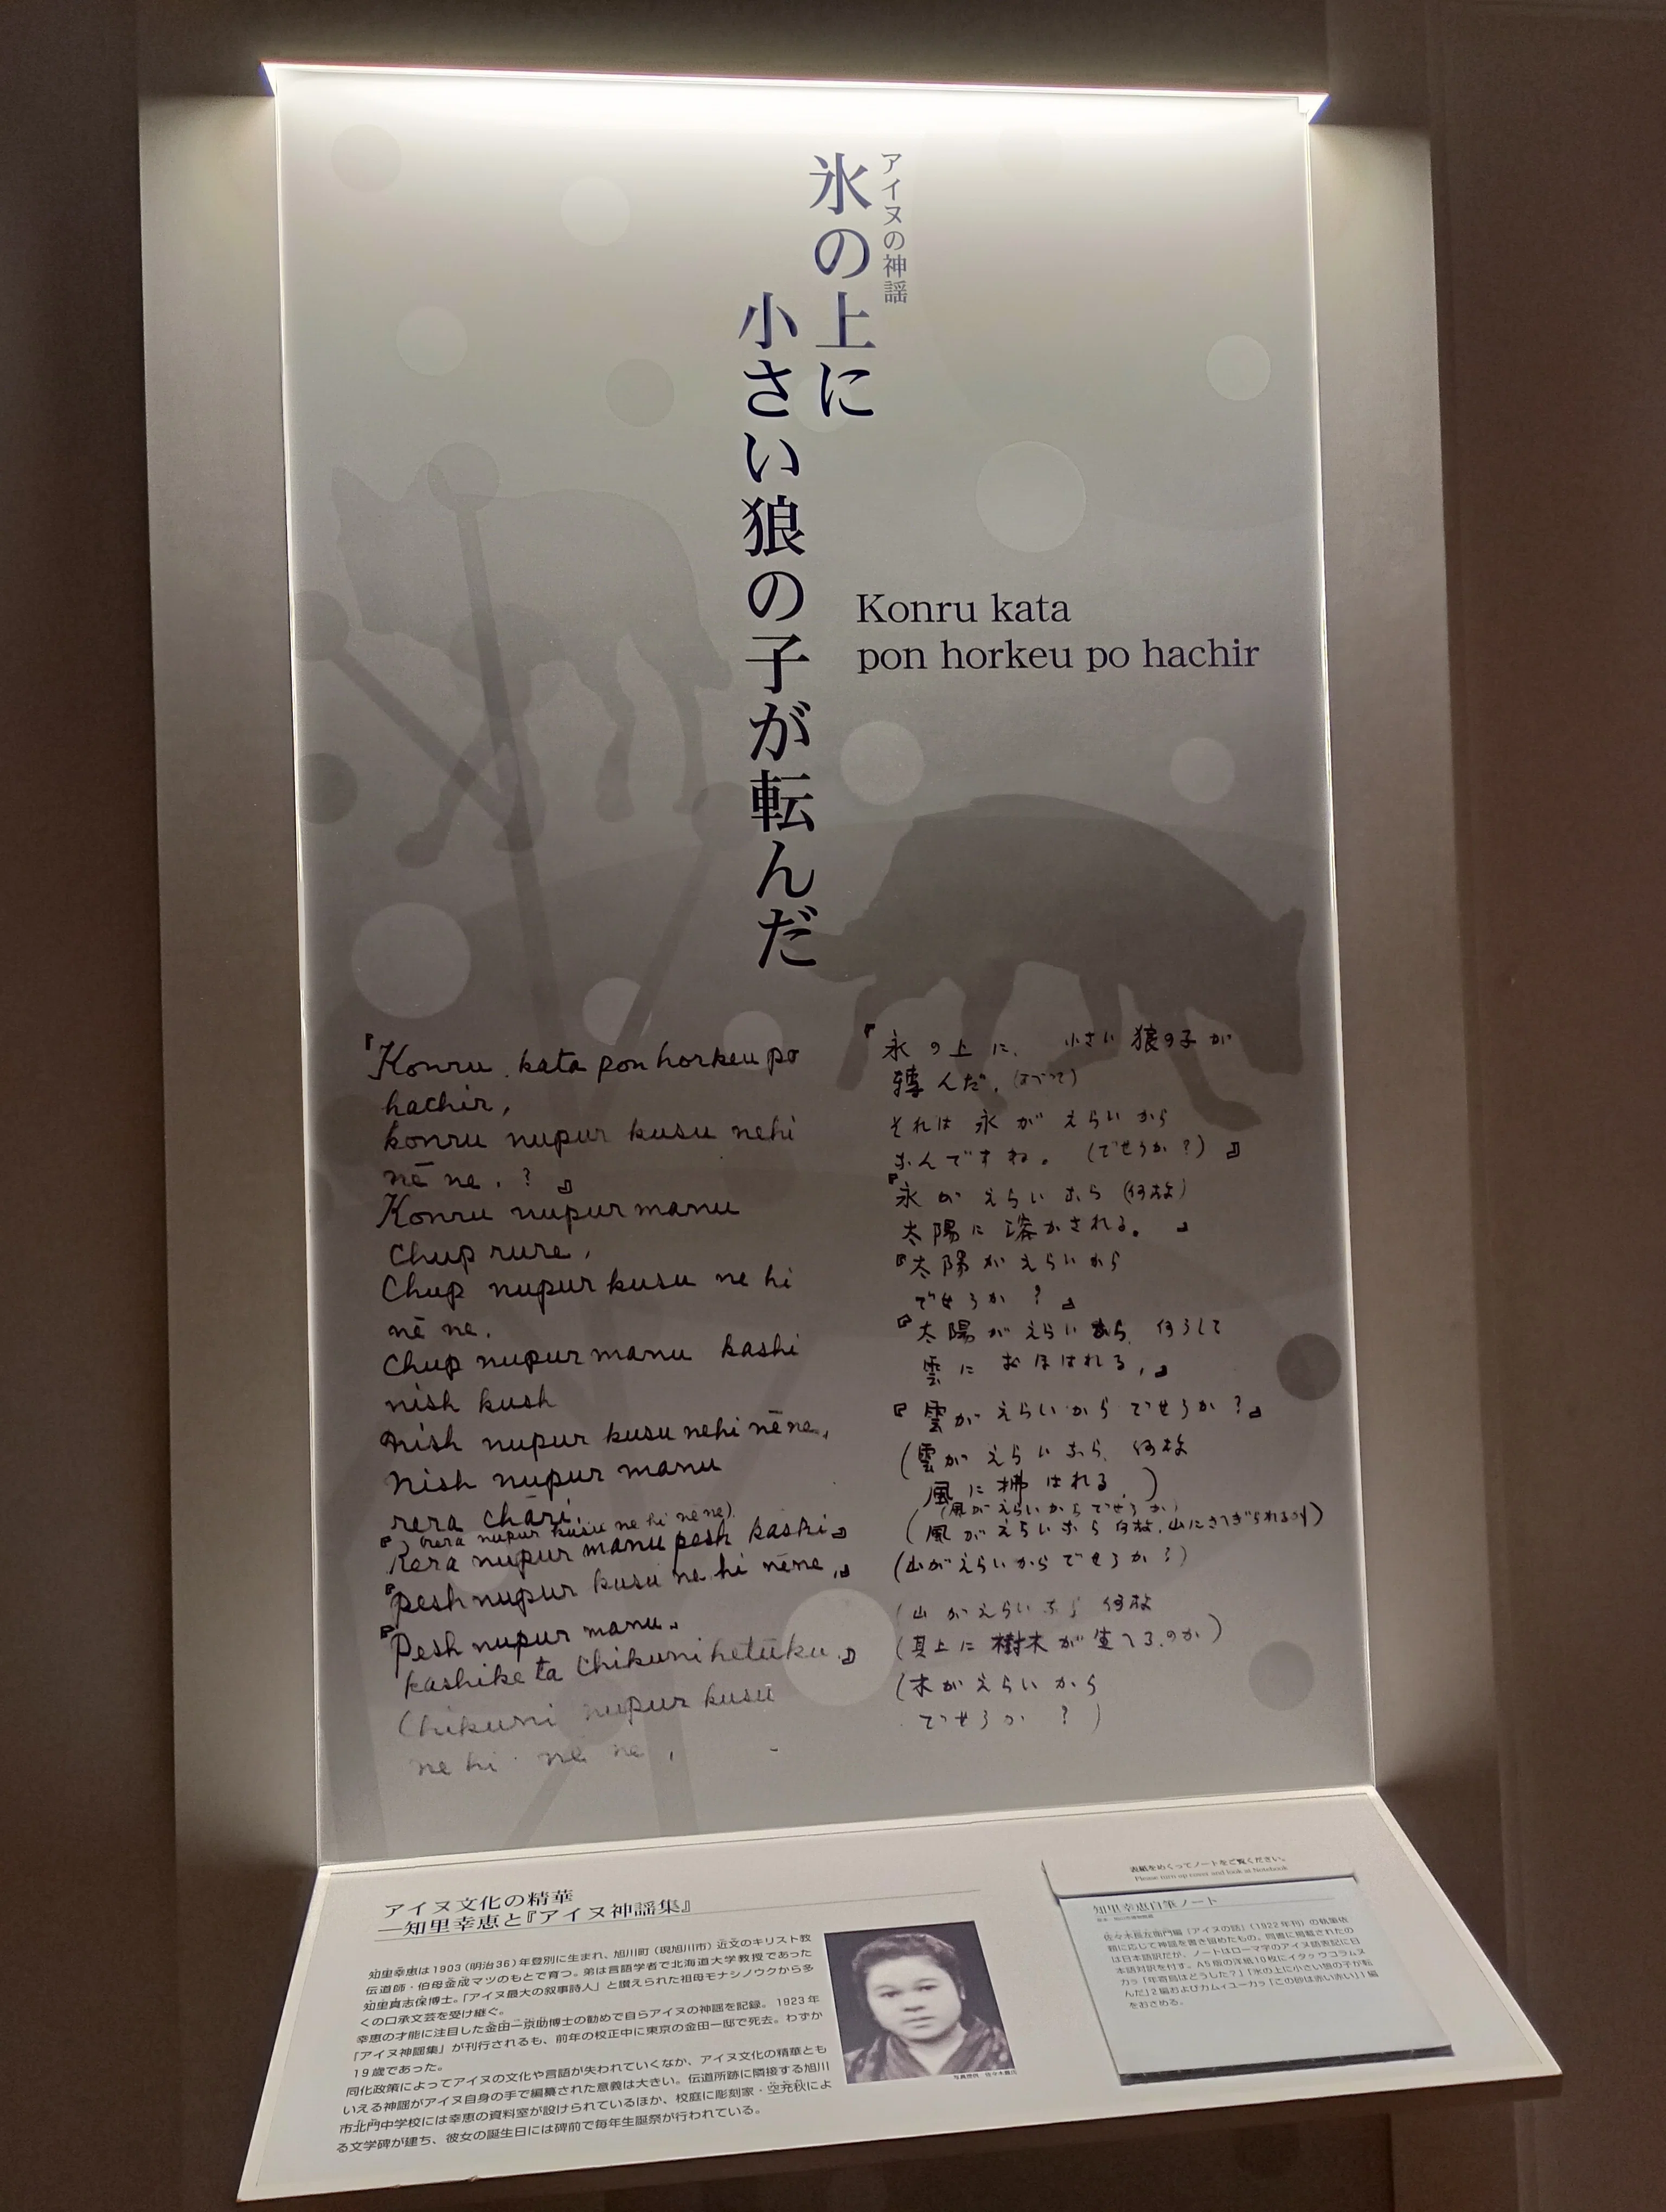 アイヌの神謡
氷の上に
小さい狼の子が転んだ
Konru kata
pon horkeu po hachir
『Konru kata pon horkeu po
hachir,
konru nupur kusu nehi
nē ne. ? 』
Konru nupur manu
Chup rure,
Chup nupur kusu ne hi
nē ne.
Chup nupur manu kashi
nish kush
nish nupur kusu nehi nēne,
Nish nupur manu
rera chāri.
(rera nupur kusu ne hi nē ne).
『Rera nupur manu pesh kashi』
『pesh nupur kusu ne hi nēne,』
『Pesh nupur manu.
kashike ta chikuni hetuku.』
Chikuni nupur kusu
ne hi nē ne,
『氷の上に、小さい狼の子が
轉んだ、
それは氷がえらいから
なんですね。(でせうか?)』
『氷がえらいなら(何故)
太陽に溶かされる。』
『太陽がえらいから
でせうか?』
『太陽がえらいなら、何うして
雲におほはれる,』
『雲がえらいからでせうか?』
(雲がえらいなら、何故
風に拂はれる、)
(風がえらいからでせうか)
(風がえらいなら何故、山にさへぎられるか)
(山がえらいからでせうか?)
(山がえらいなら何故
(其上に樹木が生へる、のか)
(木がえらいから
でせうか?)
アイヌ文化の精華
―知里幸恵と『アイヌ神謡集』
知里幸恵は1903(明治36)年登別に生まれ、旭川町(現旭川市)近文のキリスト教
伝道師・伯母金成マツのもとで育つ。弟は言語学者で北海道大学教授であった
知里真志保博士。「アイヌ最大の叙事詩人」と讃えられた祖母モナシノウクから多
くの口承文芸を受け継ぐ。
幸恵の才能に注目した金田一京助博士の勧めで自らアイヌの神謡を記録。1923年
『アイヌ神謡集』が刊行されるも、前年の校正中に東京の金田一邸で死去。わずか
19歳であった。
同化政策によってアイヌの文化や言語が失われていくなか、アイヌ文化の精華とも
いえる神謡がアイヌ自身の手で編纂された意義は大きい。伝道所跡に隣接する旭川
市北門中学校には幸恵の資料室が設けられているほか、校庭に彫刻家・空充秋によ
る文学碑が建ち、彼女の誕生日には碑前で毎年生誕祭が行われている。
表紙をめくってノートをご覧ください。
Please turn up cover and look at Notebook
知里幸恵自筆ノート
佐々木長左衛門編『アイヌの話』(1922年刊)の執筆依
頼に応じて神謡を書き留めたもの。同書に掲載されたの
は日本語訳だが、ノートはローマ字のアイヌ語表記に日
本語対訳を付す。A5版の洋紙10枚にイタㇰウコラㇺヌ
カㇻ「年寄烏はどうした?」「氷の上に小さい狼の子が転
んだ」2編およびカムイユーカㇻ「この砂は赤い赤い」1編
をおさめる。